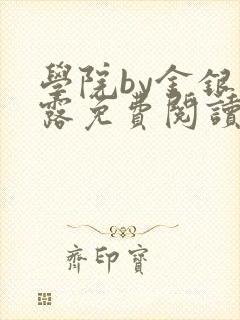 學院by金銀
露免費閱讀
齊印寶